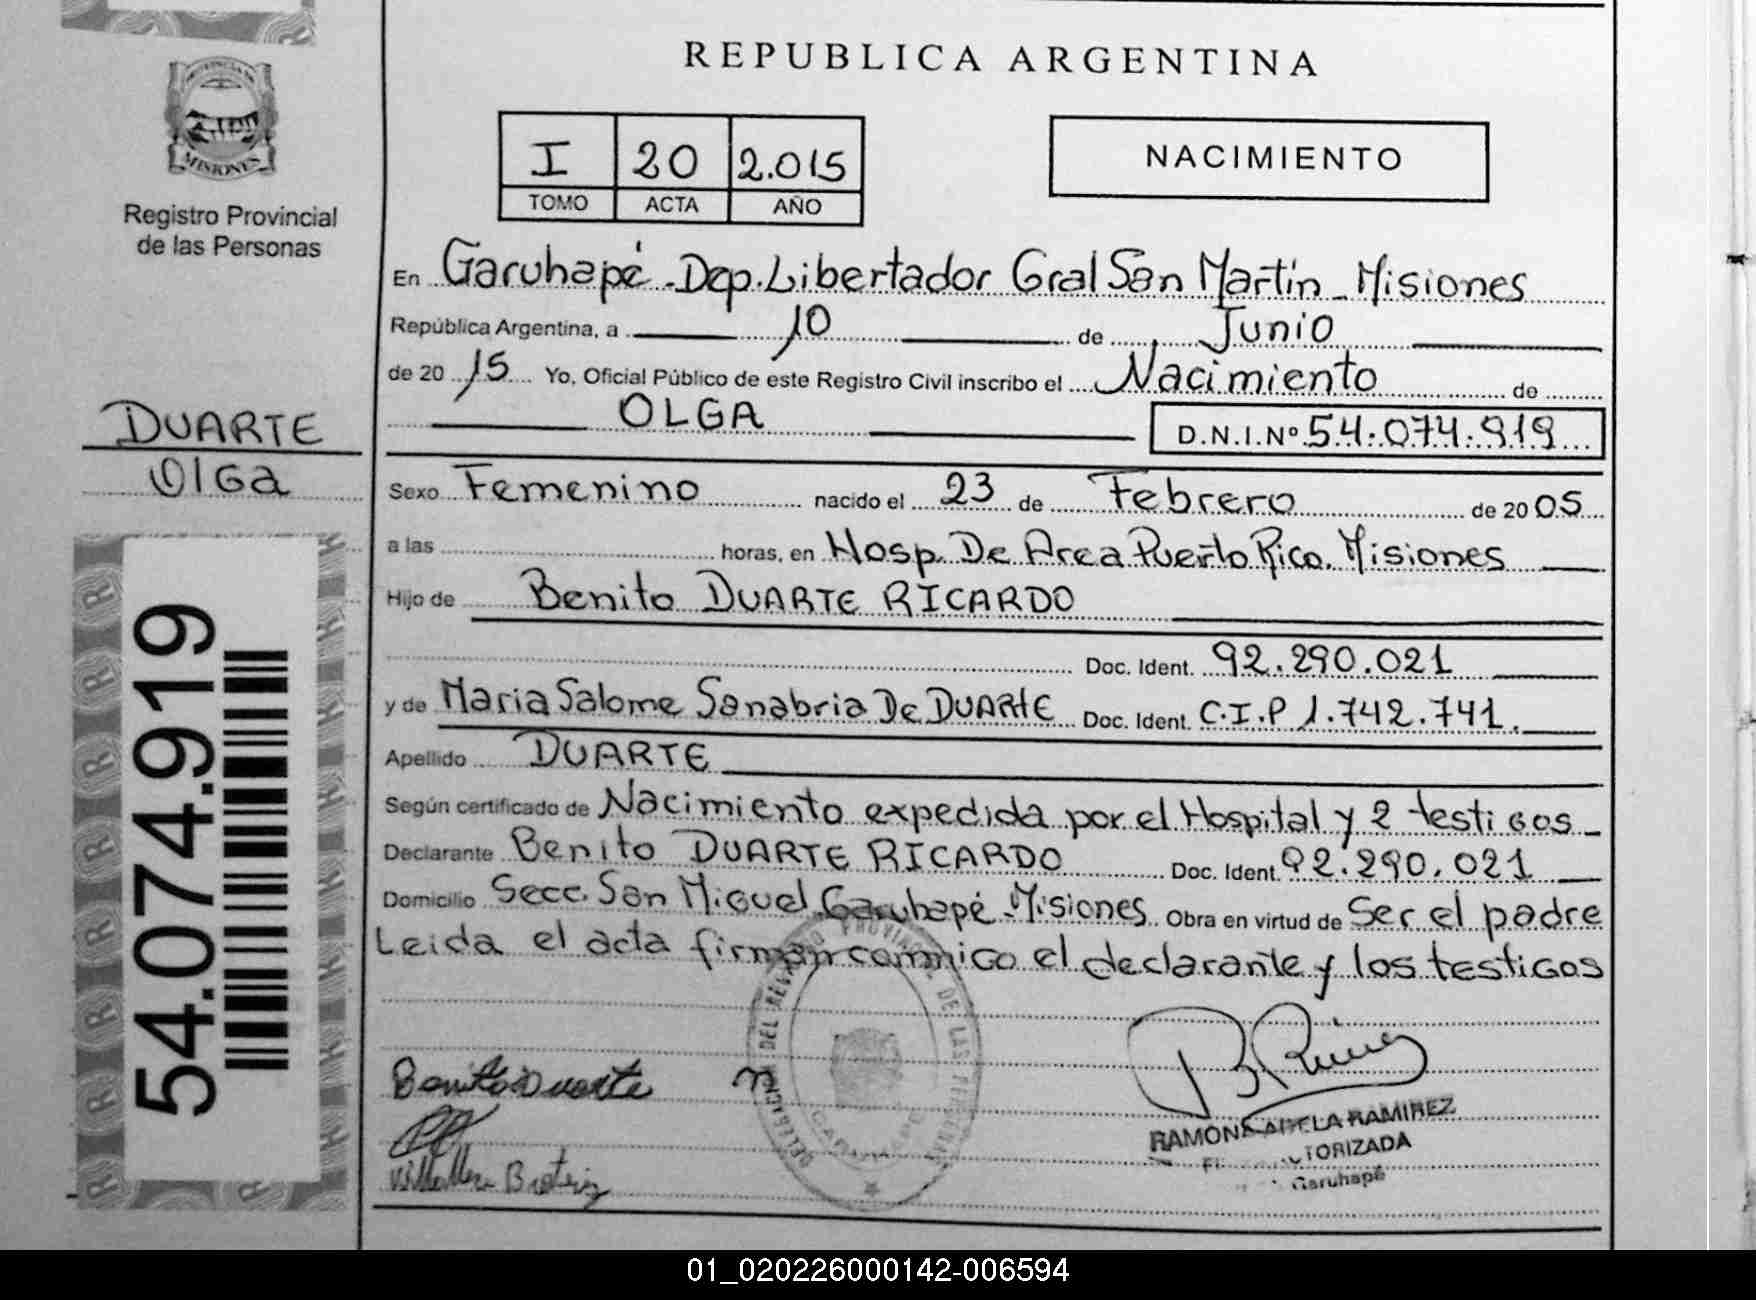 REPUBLICA ARGENTINA
PROVINCIA DE
MISIONES
Registro Provincial
de las Personas
I 20 2.015
TOMO ACTA AÑO
NACIMIENTO
En Garuhapé - Dep. Libertador Gral San Martín - Misiones
República Argentina, a 10 de Junio
de 20 15 Yo, Oficial Público de este Registro Civil inscribo el Nacimiento de
OLGA D.N.I.Nº 54.074.919
DUARTE
Olga
Sexo Femenino nacido el 23 de Febrero de 20 05
a las horas, en Hosp. De Area Puerto Rico. Misiones
Hijo de Benito DUARTE RICARDO
Doc. Ident. 92.290.021
y de Maria Salome Sanabria De DUARTE Doc. Ident. C.I.P 1.742.741.
Apellido DUARTE
Según certificado de Nacimiento expedida por el Hospital y 2 testigos -
Declarante Benito DUARTE RICARDO Doc. Ident. 92.290.021
Domicilio Secc. San Miguel Garuhapé - Misiones Obra en virtud de Ser el padre
Leida el acta firman conmigo el declarante y los testigos
54.074.919
Benito Duarte
DEL REGISTRO PROVINC. DE LAS PERSONAS
GARUHAPE
RAMONA ADELA RAMIREZ
Garuhapé
01_020226000142-006594